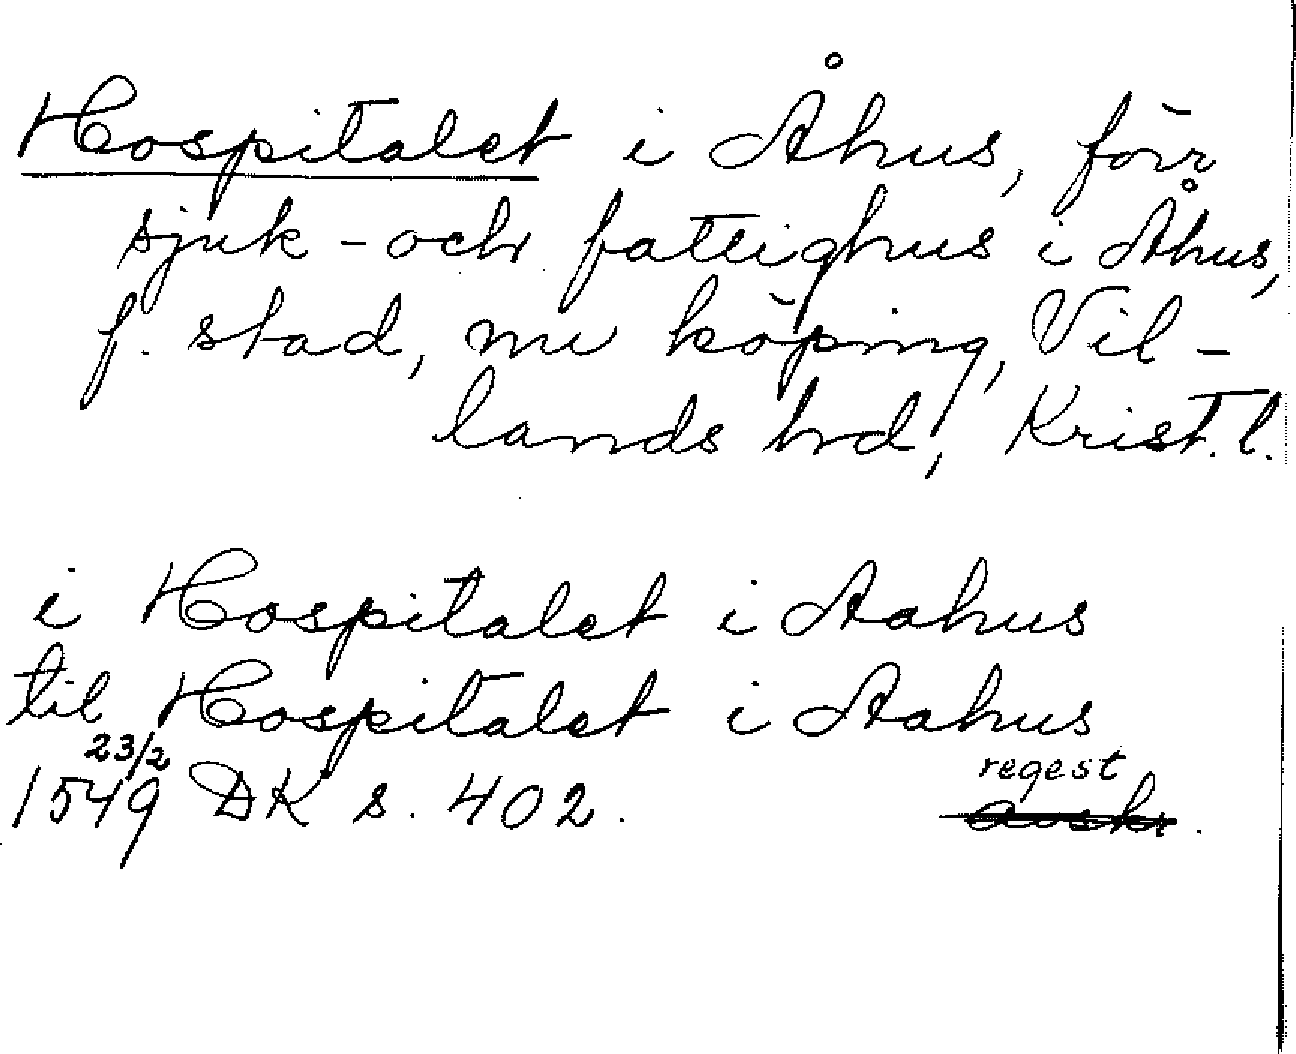 Hospitalet i Åhus, förr
sjuk- och fattighus i Åhus,
f. stad, nu köping, Vil-
lands hd, Krist. l.
i Hospitalet i Aahus
til Hospitalet i Aahus
23/2 regest
1549 DK s. 402. avskr.